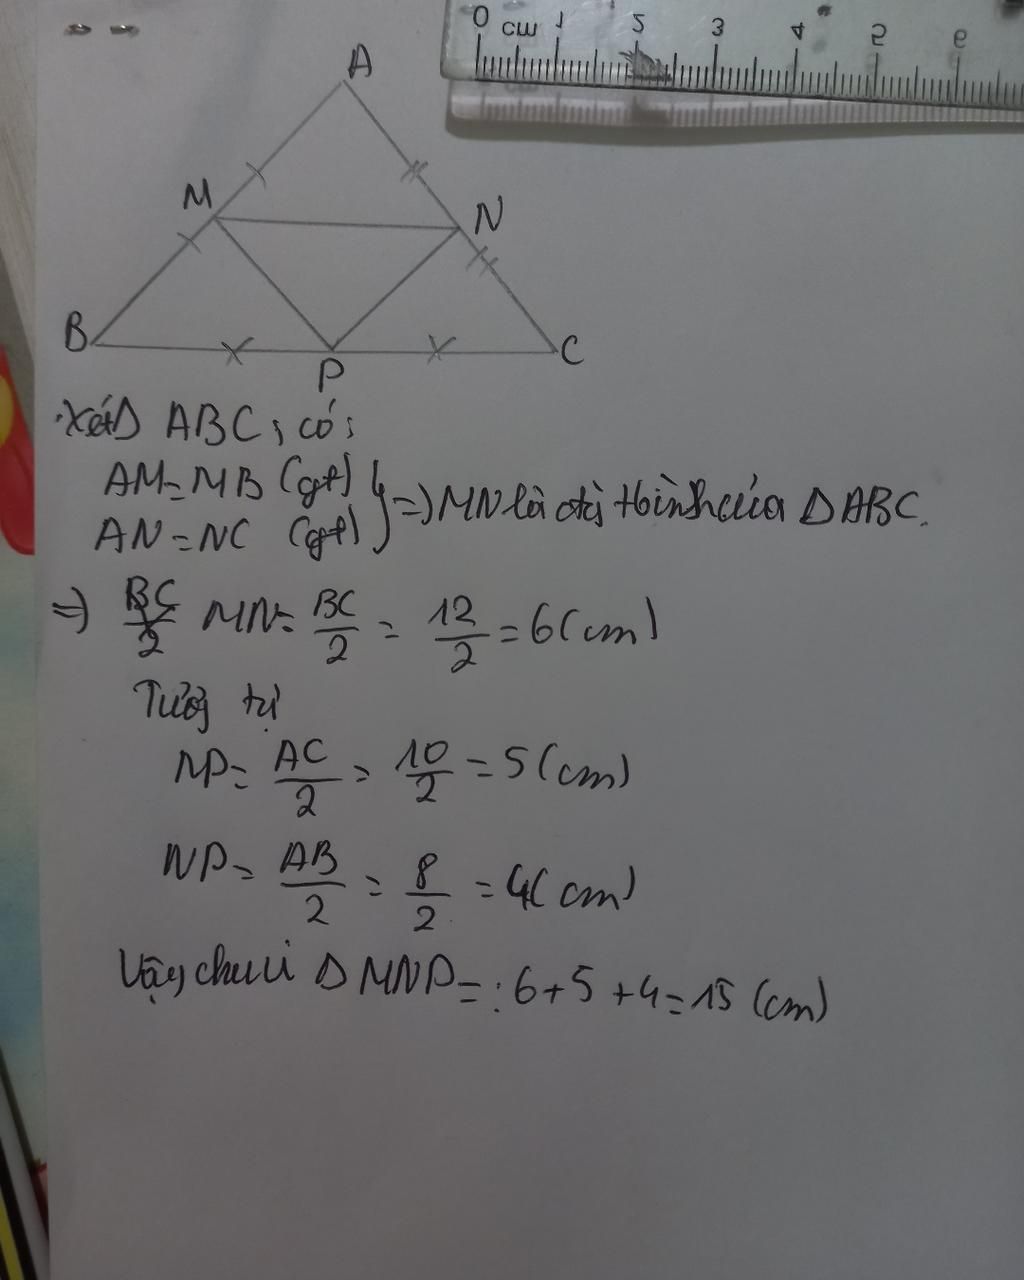 0 cm 1 2 3 4 5 6
A
M
N
B
P
C
Xét Δ ABC, có:
AM = MB (gt)
AN = NC (gt)
} => MN là đtb trình của Δ ABC.
=> MN = BC/2 = 12/2 = 6 (cm)
Tương tự
MP = AC/2 = 10/2 = 5 (cm)
NP = AB/2 = 8/2 = 4 (cm)
Vậy chu vi Δ MNP = : 6 + 5 + 4 = 15 (cm)